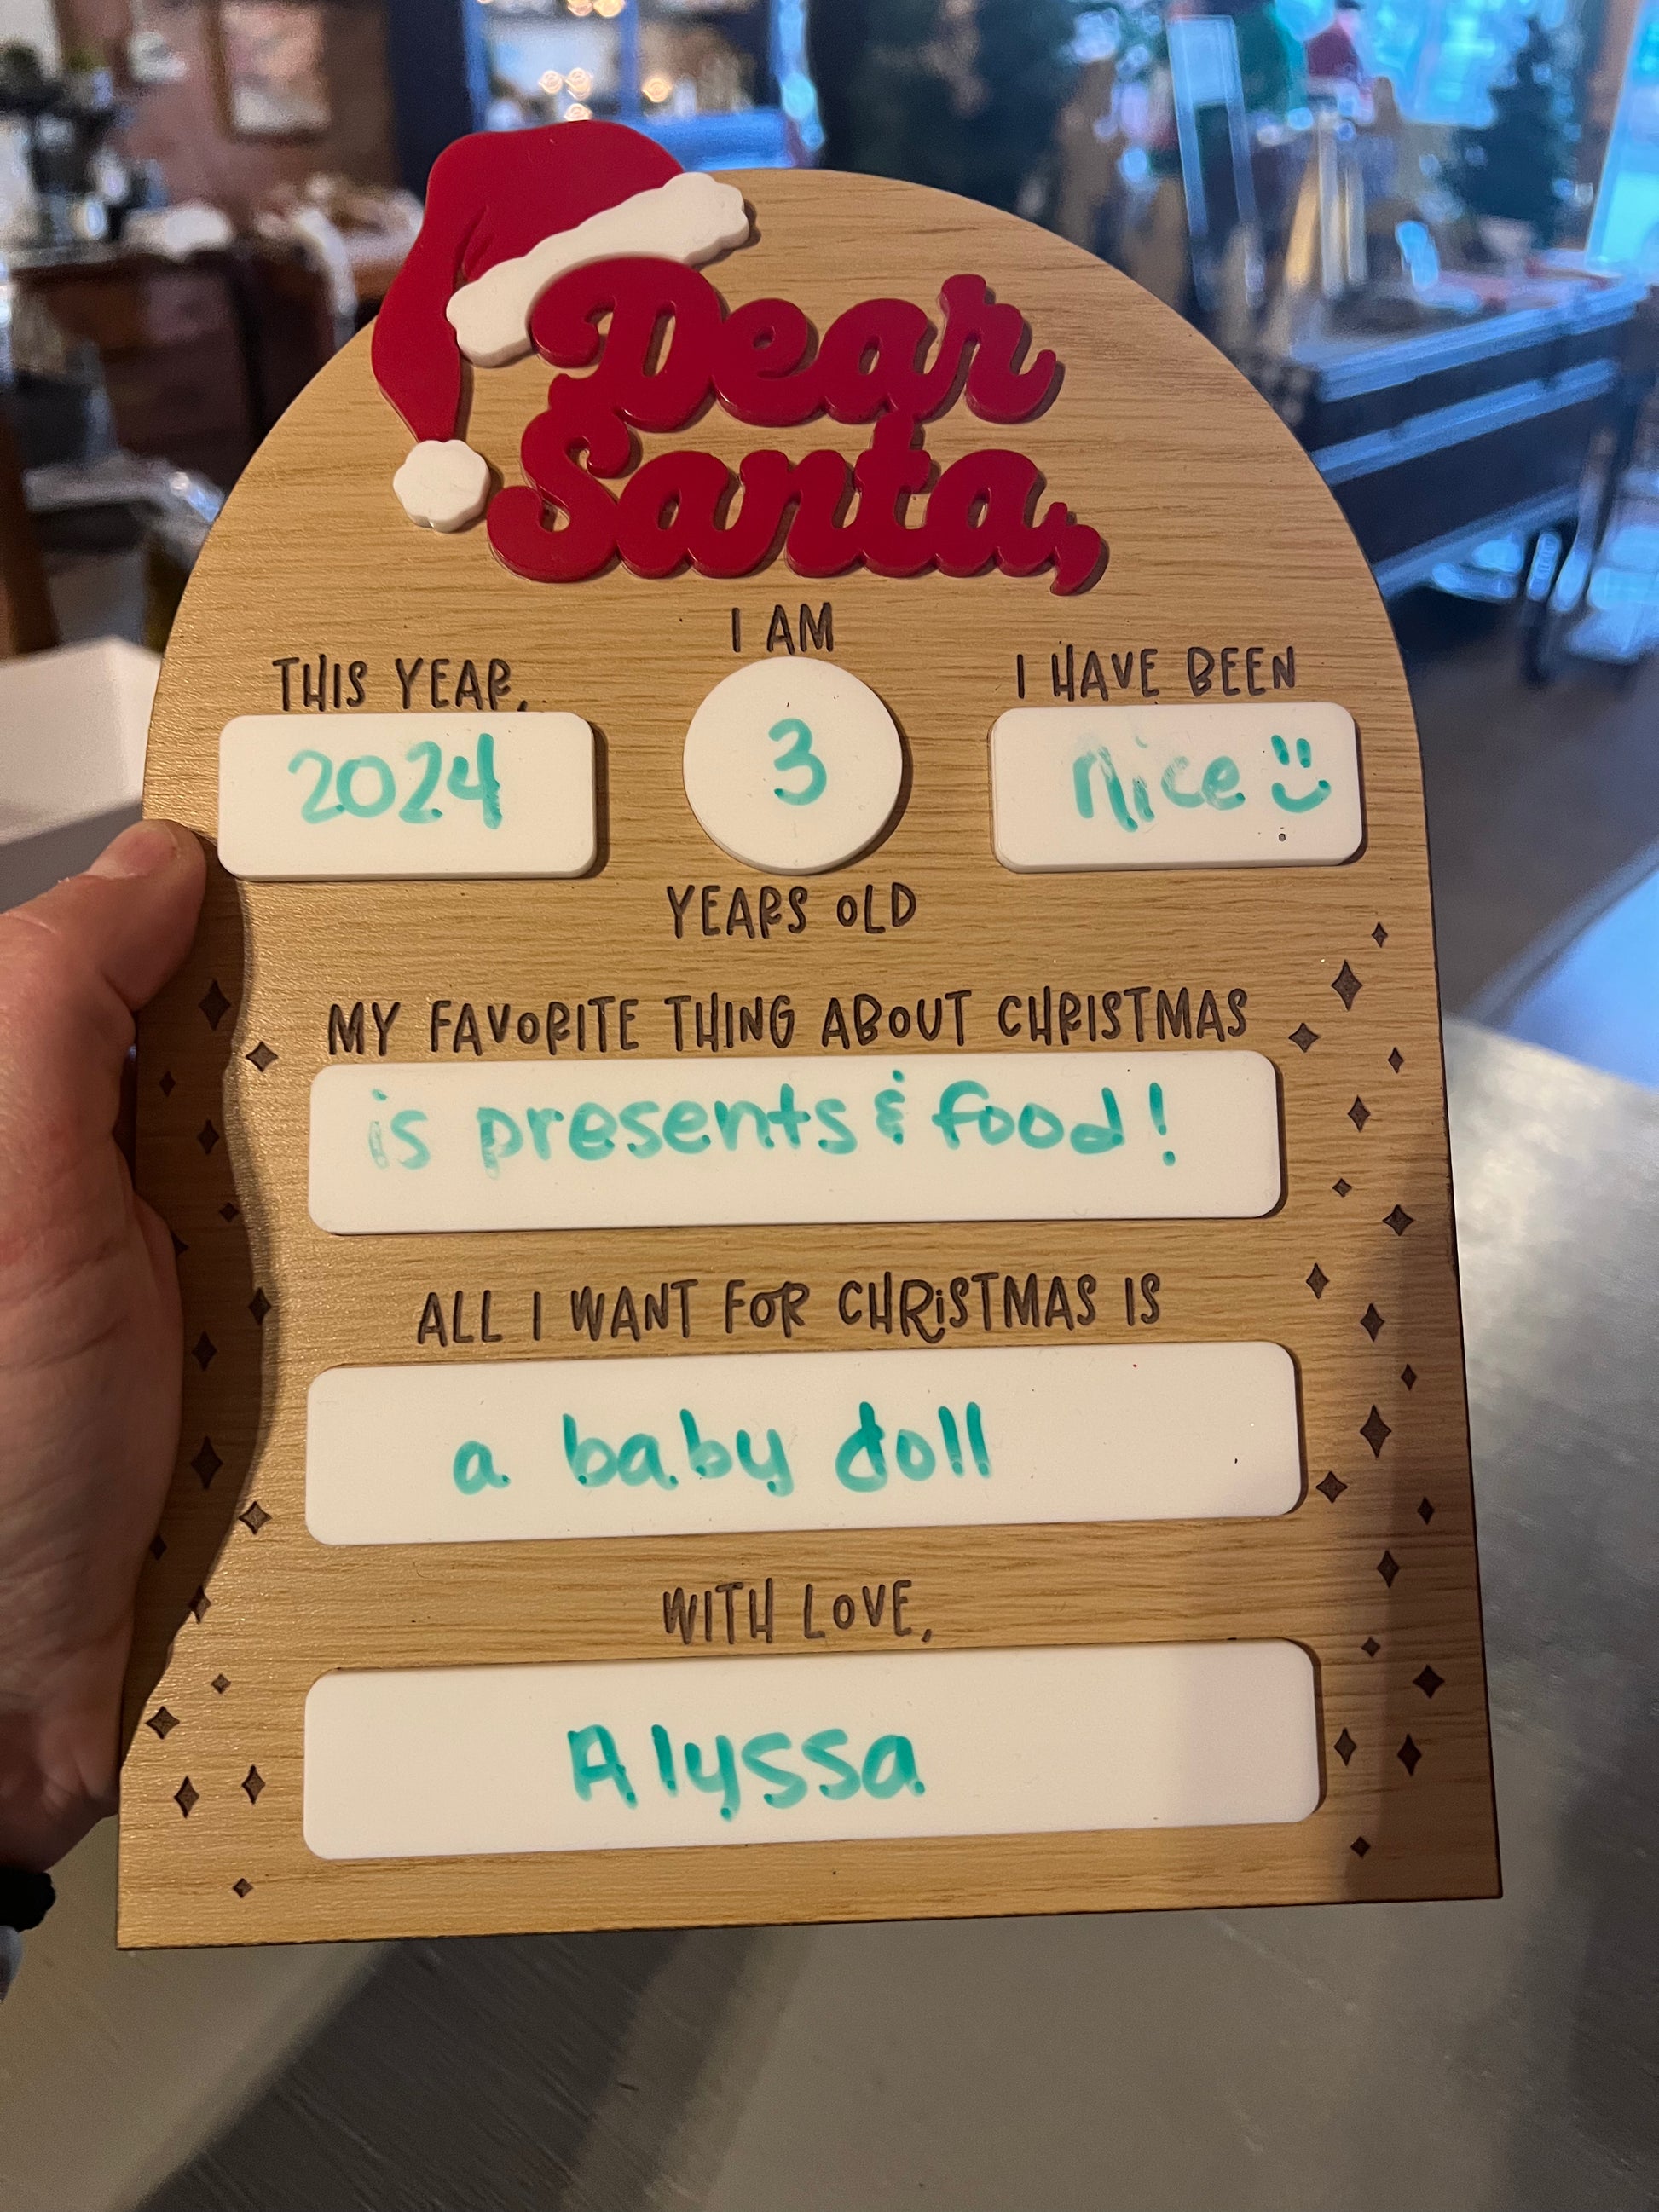 Dear
Santa,
I AM
THIS YEAR,
I HAVE BEEN
2024
3
nice
YEARS OLD
MY FAVORITE THING ABOUT CHRISTMAS
is presents & food!
ALL I WANT FOR CHRISTMAS IS
a baby doll
WITH LOVE,
Alyssa